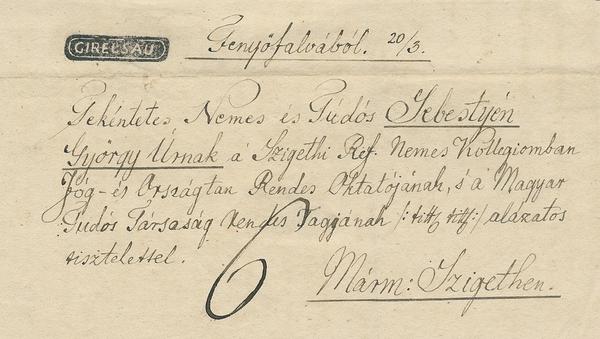 GIRELSAU
Fenyőfalvából. 20/3.
Tekéntetes Nemes és Túdós Sebestyén
György Úrnak a' Szigethi Ref. Nemes Kollegiomban
Jóg- és Országtan Rendes Oktatójának, 's a' Magyar
Túdós Társaság rendes Tagjának /: titt titt :/ alázatos
tisztelettel.
6
Márm: Szigethen.